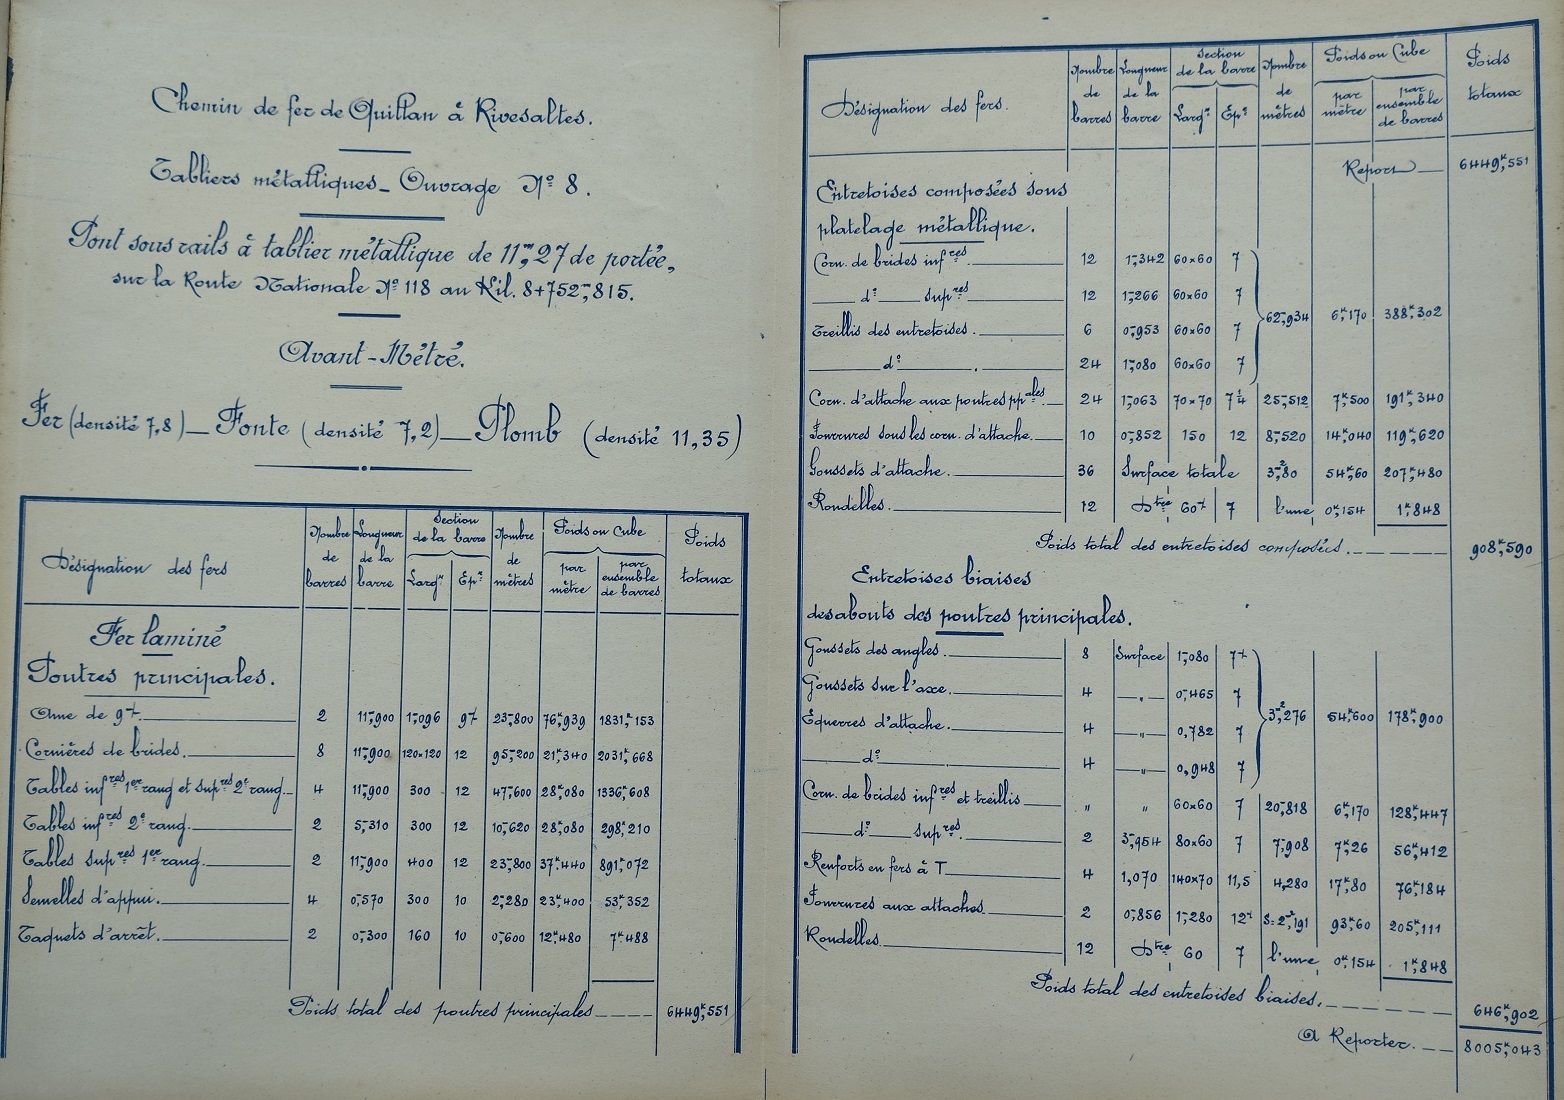 Chemin de fer de Quillan à Rivesaltes.
Tabliers métalliques_ Ouvrage Nº 8.
Pont sous rails à tablier métallique de 11m,27 de portée,
sur la Route Nationale Nº 118 au Kil. 8+752m,815.
Avant-Métré.
Fer (densité 7,8)_ Fonte (densité 7,2)_ Plomb (densité 11,35)
Désignation des fers | Nombre de barres | Longueur de la barre | Section de la barre Largr Epr | Nombre de mètres | Poids ou Cube par mètre par ensemble de barres | Poids totaux
Fer laminé
Poutres principales.
Ame de 9 2 11m,900 1m,096 9 23m,800 76k,939 1831k,153
Cornières de brides. 8 11m,900 120×120 12 95m,200 21k,340 2031k,668
Tables infres 1er rang et supres 2e rang. 4 11m,900 300 12 47m,600 28k,080 1336k,608
Tables infres 2e rang. 2 5m,310 300 12 10m,620 28k,080 298k,210
Tables supres 1er rang. 2 11m,900 400 12 23m,800 37k,440 891k,072
Semelles d'appui. 4 0m,570 300 10 2m,280 23k,400 53k,352
Taquets d'arrêt. 2 0m,300 160 10 0m,600 12k,480 7k,488
Poids total des poutres principales 6449k,551
Désignation des fers. | Nombre de barres | Longueur de la barre | Section de la barre Largr Epr | Nombre de mètres | Poids ou Cube par mètre par ensemble de barres | Poids totaux
Report 6449k,551
Entretoises composées sous
platelage métallique.
Corn. de brides infres. 12 1m,342 60×60 7
do supres 12 1m,266 60×60 7 62m,934 6k,170 388k,302
Treillis des entretoises. 6 0m,953 60×60 7
do 24 1m,080 60×60 7
Corn. d'attache aux poutres ppales 24 1m,063 70×70 7 25m,512 7k,500 191k,340
Fourrures sous les corn. d'attache. 10 0m,852 150 12 8m,520 14k,040 119k,620
Goussets d'attache. 36 Surface totale 3m2,80 54k,60 207k,480
Rondelles. 12 Dtre 60 7 l'une 0k,154 1k,848
Poids total des entretoises composées. 908k,590
Entretoises biaises
des abouts des poutres principales.
Goussets des angles. 8 Surface 1m,080 7
Goussets sur l'axe. 4 " 0m,465 7
Equerres d'attache. 4 " 0,782 7 3m2,276 54k,600 178k,900
do 4 " 0,948 7
Corn. de brides infres et treillis " " 60×60 7 20m,818 6k,170 128k,447
do supres. 2 3m,954 80×60 7 7m,908 7k,26 56k,412
Renforts en fers à T 4 1,070 140×70 11,5 4,280 17k,80 76k,184
Fourrures aux attaches 2 0m,856 1m,280 12 S=2m2,191 93k,60 205k,111
Rondelles 12 Dtre 60 7 l'une 0k,154 1k,848
Poids total des entretoises biaises. 646k,902
A Reporter. 8005k,043